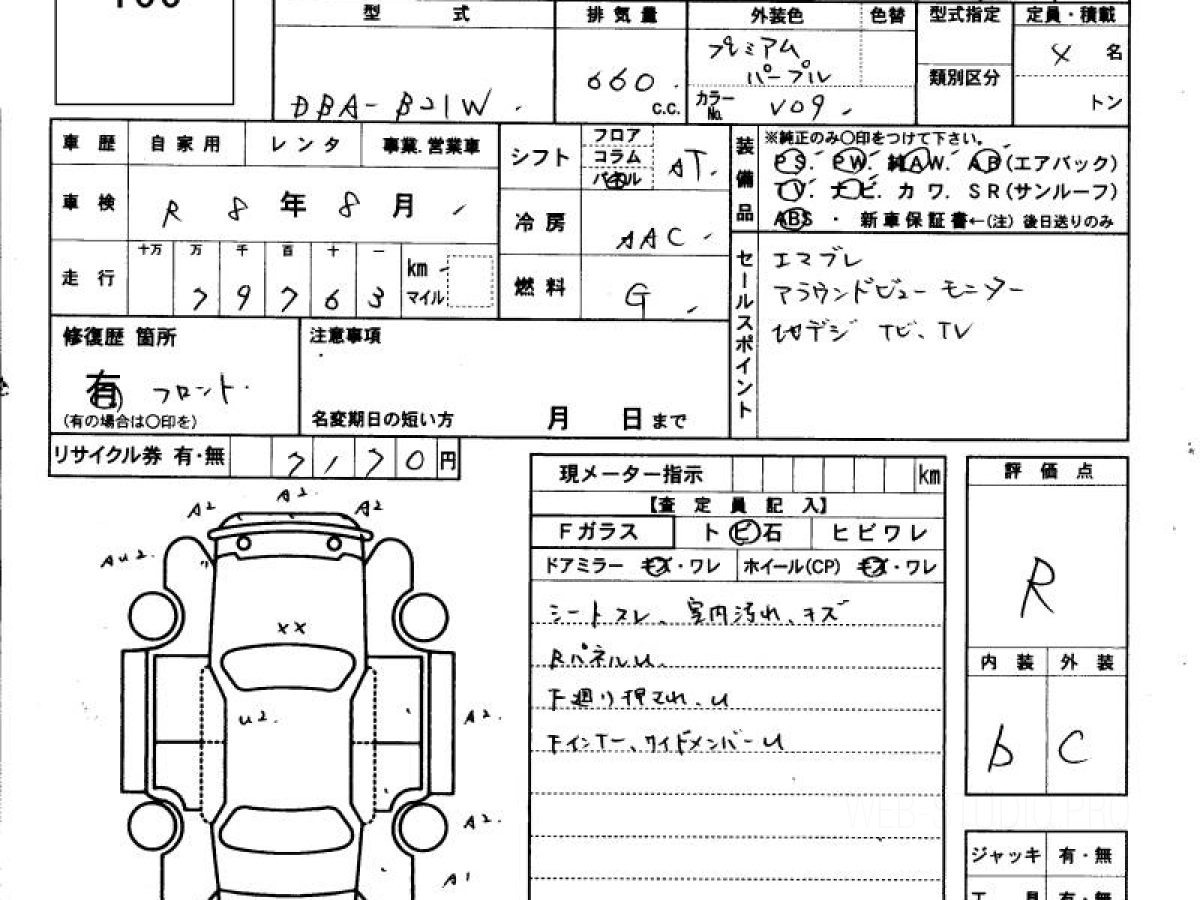 型 式 排 気 量 外装色 色替 型式指定 定員・積載
DBA-B21W 660 c.c. プレミアム パープル 4 名
カラーNo. V09 類別区分 トン
車 歴 自 家 用 レ ン タ 事業.営業車
シフト フロア コラム パネル AT
車 検 R 8 年 8 月
冷 房 AAC
走 行 十万 万 千 百 十 一 km マイル
7 9 7 6 3
燃 料 G
装備品 ※純正のみ〇印をつけて下さい。
PS. PW. 純AW. AB(エアバック)
TV. ナビ. カワ. SR(サンルーフ)
ABS ・ 新車保証書←(注) 後日送りのみ
セールスポイント
エマブレ
アラウンドビューモニター
地デジ ナビ、TV
修復歴 箇所
有 フロント
(有の場合は〇印を)
注意事項
名変期日の短い方 月 日 まで
リサイクル券 有・無 7,170 円
現メーター指示 km
【査 定 員 記 入】
Fガラス トビ石 ヒビワレ
ドアミラー キズ・ワレ ホイール(CP) キズ・ワレ
シートスレ、室内汚れ、キズ
RパネルU、
下廻り押され、U
Fインナー、サイドメンバーU
評 価 点
R
内 装 外 装
D C
ジャッキ 有・無
工 具 有・無
A2 A2 A2
AU2
XX
U2
A2
A2
A1
WEB-STUDIO PRO